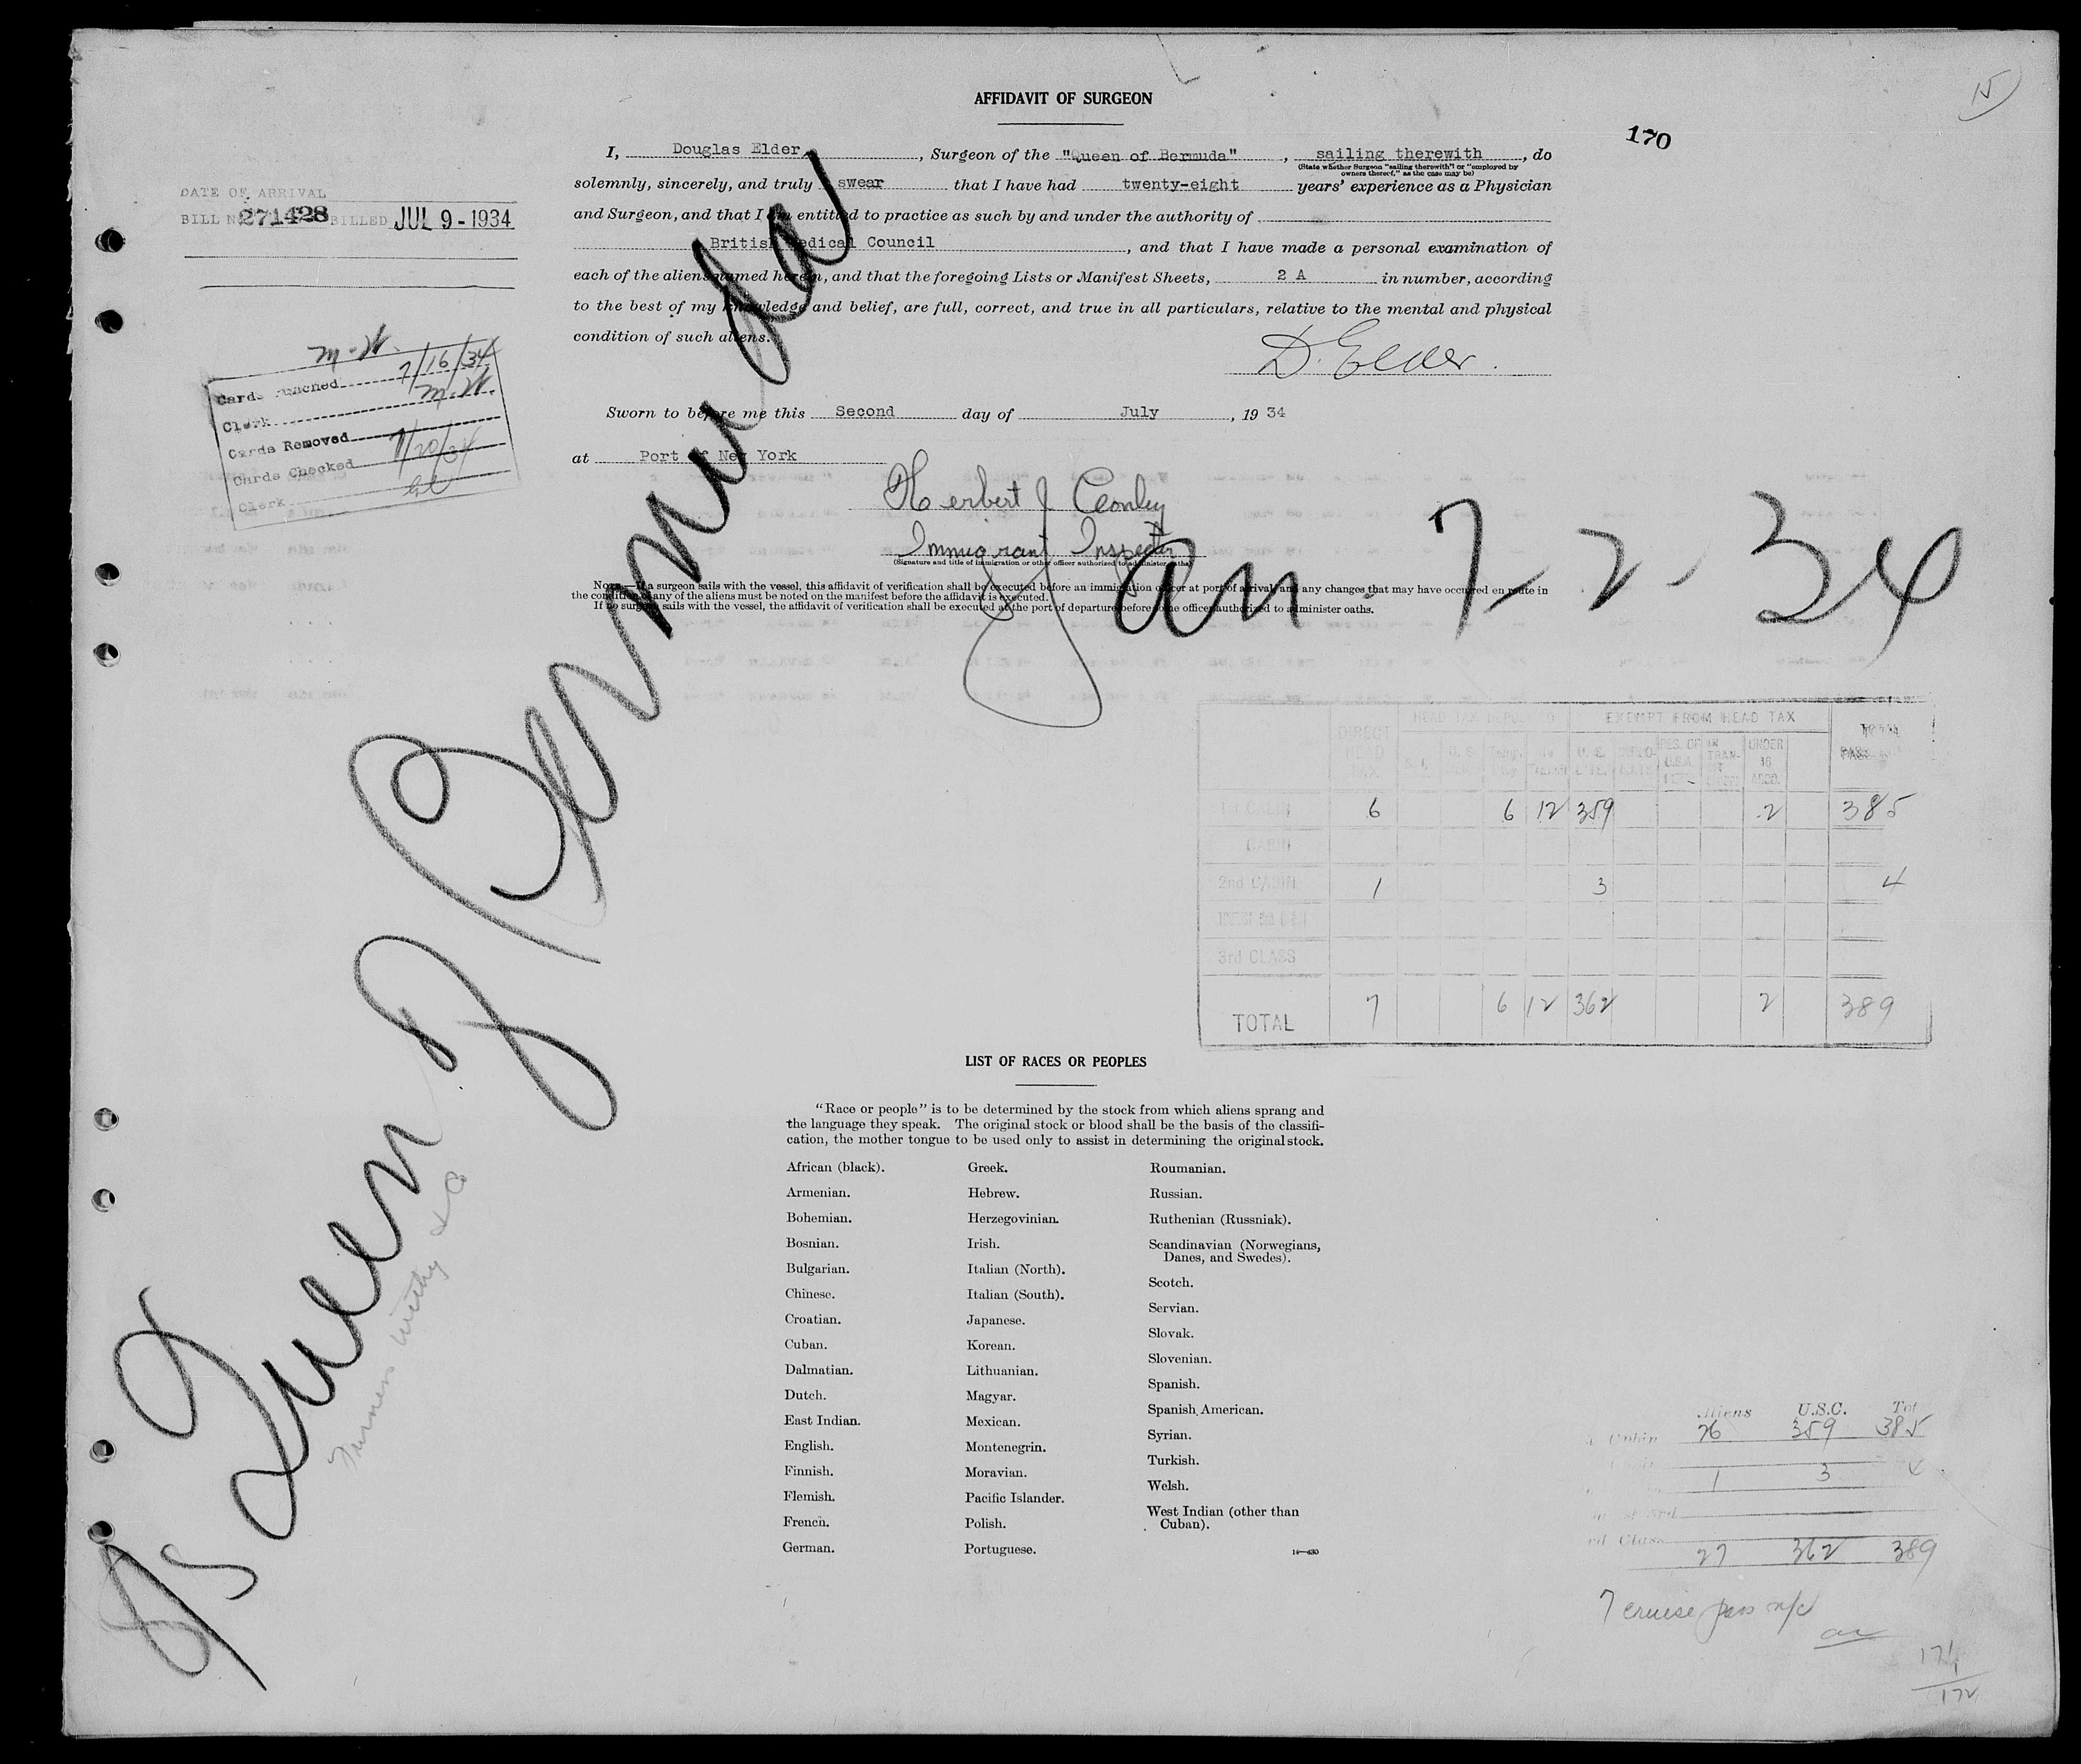 15
AFFIDAVIT OF SURGEON
170
I, Douglas Elder, Surgeon of the "Queen of Bermuda", sailing therewith, do
(State whether Surgeon "sailing therewith" or "employed by
owners thereof," as the case may be)
solemnly, sincerely, and truly swear that I have had twenty-eight years' experience as a Physician
and Surgeon, and that I am entitled to practice as such by and under the authority of
British Medical Council, and that I have made a personal examination of
each of the aliens named herein, and that the foregoing Lists or Manifest Sheets, 2 A in number, according
to the best of my knowledge and belief, are full, correct, and true in all particulars, relative to the mental and physical
condition of such aliens.
D. Elder.
Sworn to before me this Second day of July, 19 34
at Port of New York
Herbert J Conley
Immigrant Inspector
(Signature and title of immigration or other officer authorized to administer oaths)
NOTE.—If a surgeon sails with the vessel, this affidavit of verification shall be executed before an immigration officer at port of arrival, and any changes that may have occurred en route in
the condition of any of the aliens must be noted on the manifest before the affidavit is executed.
If no surgeon sails with the vessel, the affidavit of verification shall be executed at the port of departure before some officer authorized to administer oaths.
DATE OF ARRIVAL
BILL No 271428 BILLED JUL 9 - 1934
m.W.
Cards Punched 7/16/34
Clerk m.W.
Cards Removed
Cards Checked 7/20/34
Clerk
S/S Queen of Bermuda
Furness Withy & Co
arr 7-2-34
DIRECT HEAD TAX
HEAD TAX DEPOSITED
EXEMPT FROM HEAD TAX
UNDER 16 ACCO.
1st CABIN 6 6 12 359 2 385
CABIN
2nd CABIN 1 3 4
3rd CLASS
TOTAL 7 6 12 362 2 389
LIST OF RACES OR PEOPLES
"Race or people" is to be determined by the stock from which aliens sprang and
the language they speak. The original stock or blood shall be the basis of the classifi-
cation, the mother tongue to be used only to assist in determining the original stock.
African (black).
Armenian.
Bohemian.
Bosnian.
Bulgarian.
Chinese.
Croatian.
Cuban.
Dalmatian.
Dutch.
East Indian.
English.
Finnish.
Flemish.
French.
German.
Greek.
Hebrew.
Herzegovinian.
Irish.
Italian (North).
Italian (South).
Japanese.
Korean.
Lithuanian.
Magyar.
Mexican.
Montenegrin.
Moravian.
Pacific Islander.
Polish.
Portuguese.
Roumanian.
Russian.
Ruthenian (Russniak).
Scandinavian (Norwegians,
Danes, and Swedes).
Scotch.
Servian.
Slovak.
Slovenian.
Spanish.
Spanish American.
Syrian.
Turkish.
Welsh.
West Indian (other than
Cuban).
14—430
Aliens U.S.C. Tot
Cabin 26 359 385
1 3 4
Class
27 362 389
7 cruise pass n/c
171
172